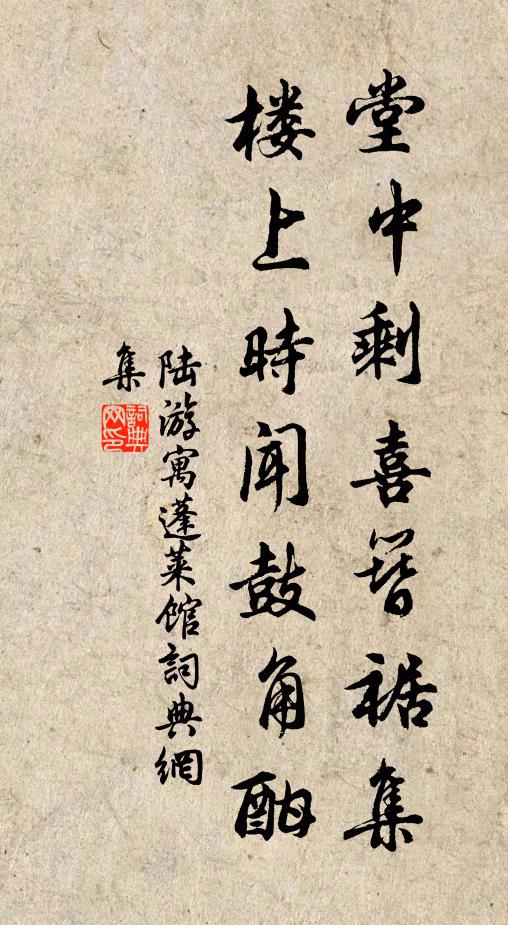 堂中剩喜簪裾集
楼上時闻鼓角酣
陆游寓蓬莱馆詞典網
集
詞典网印